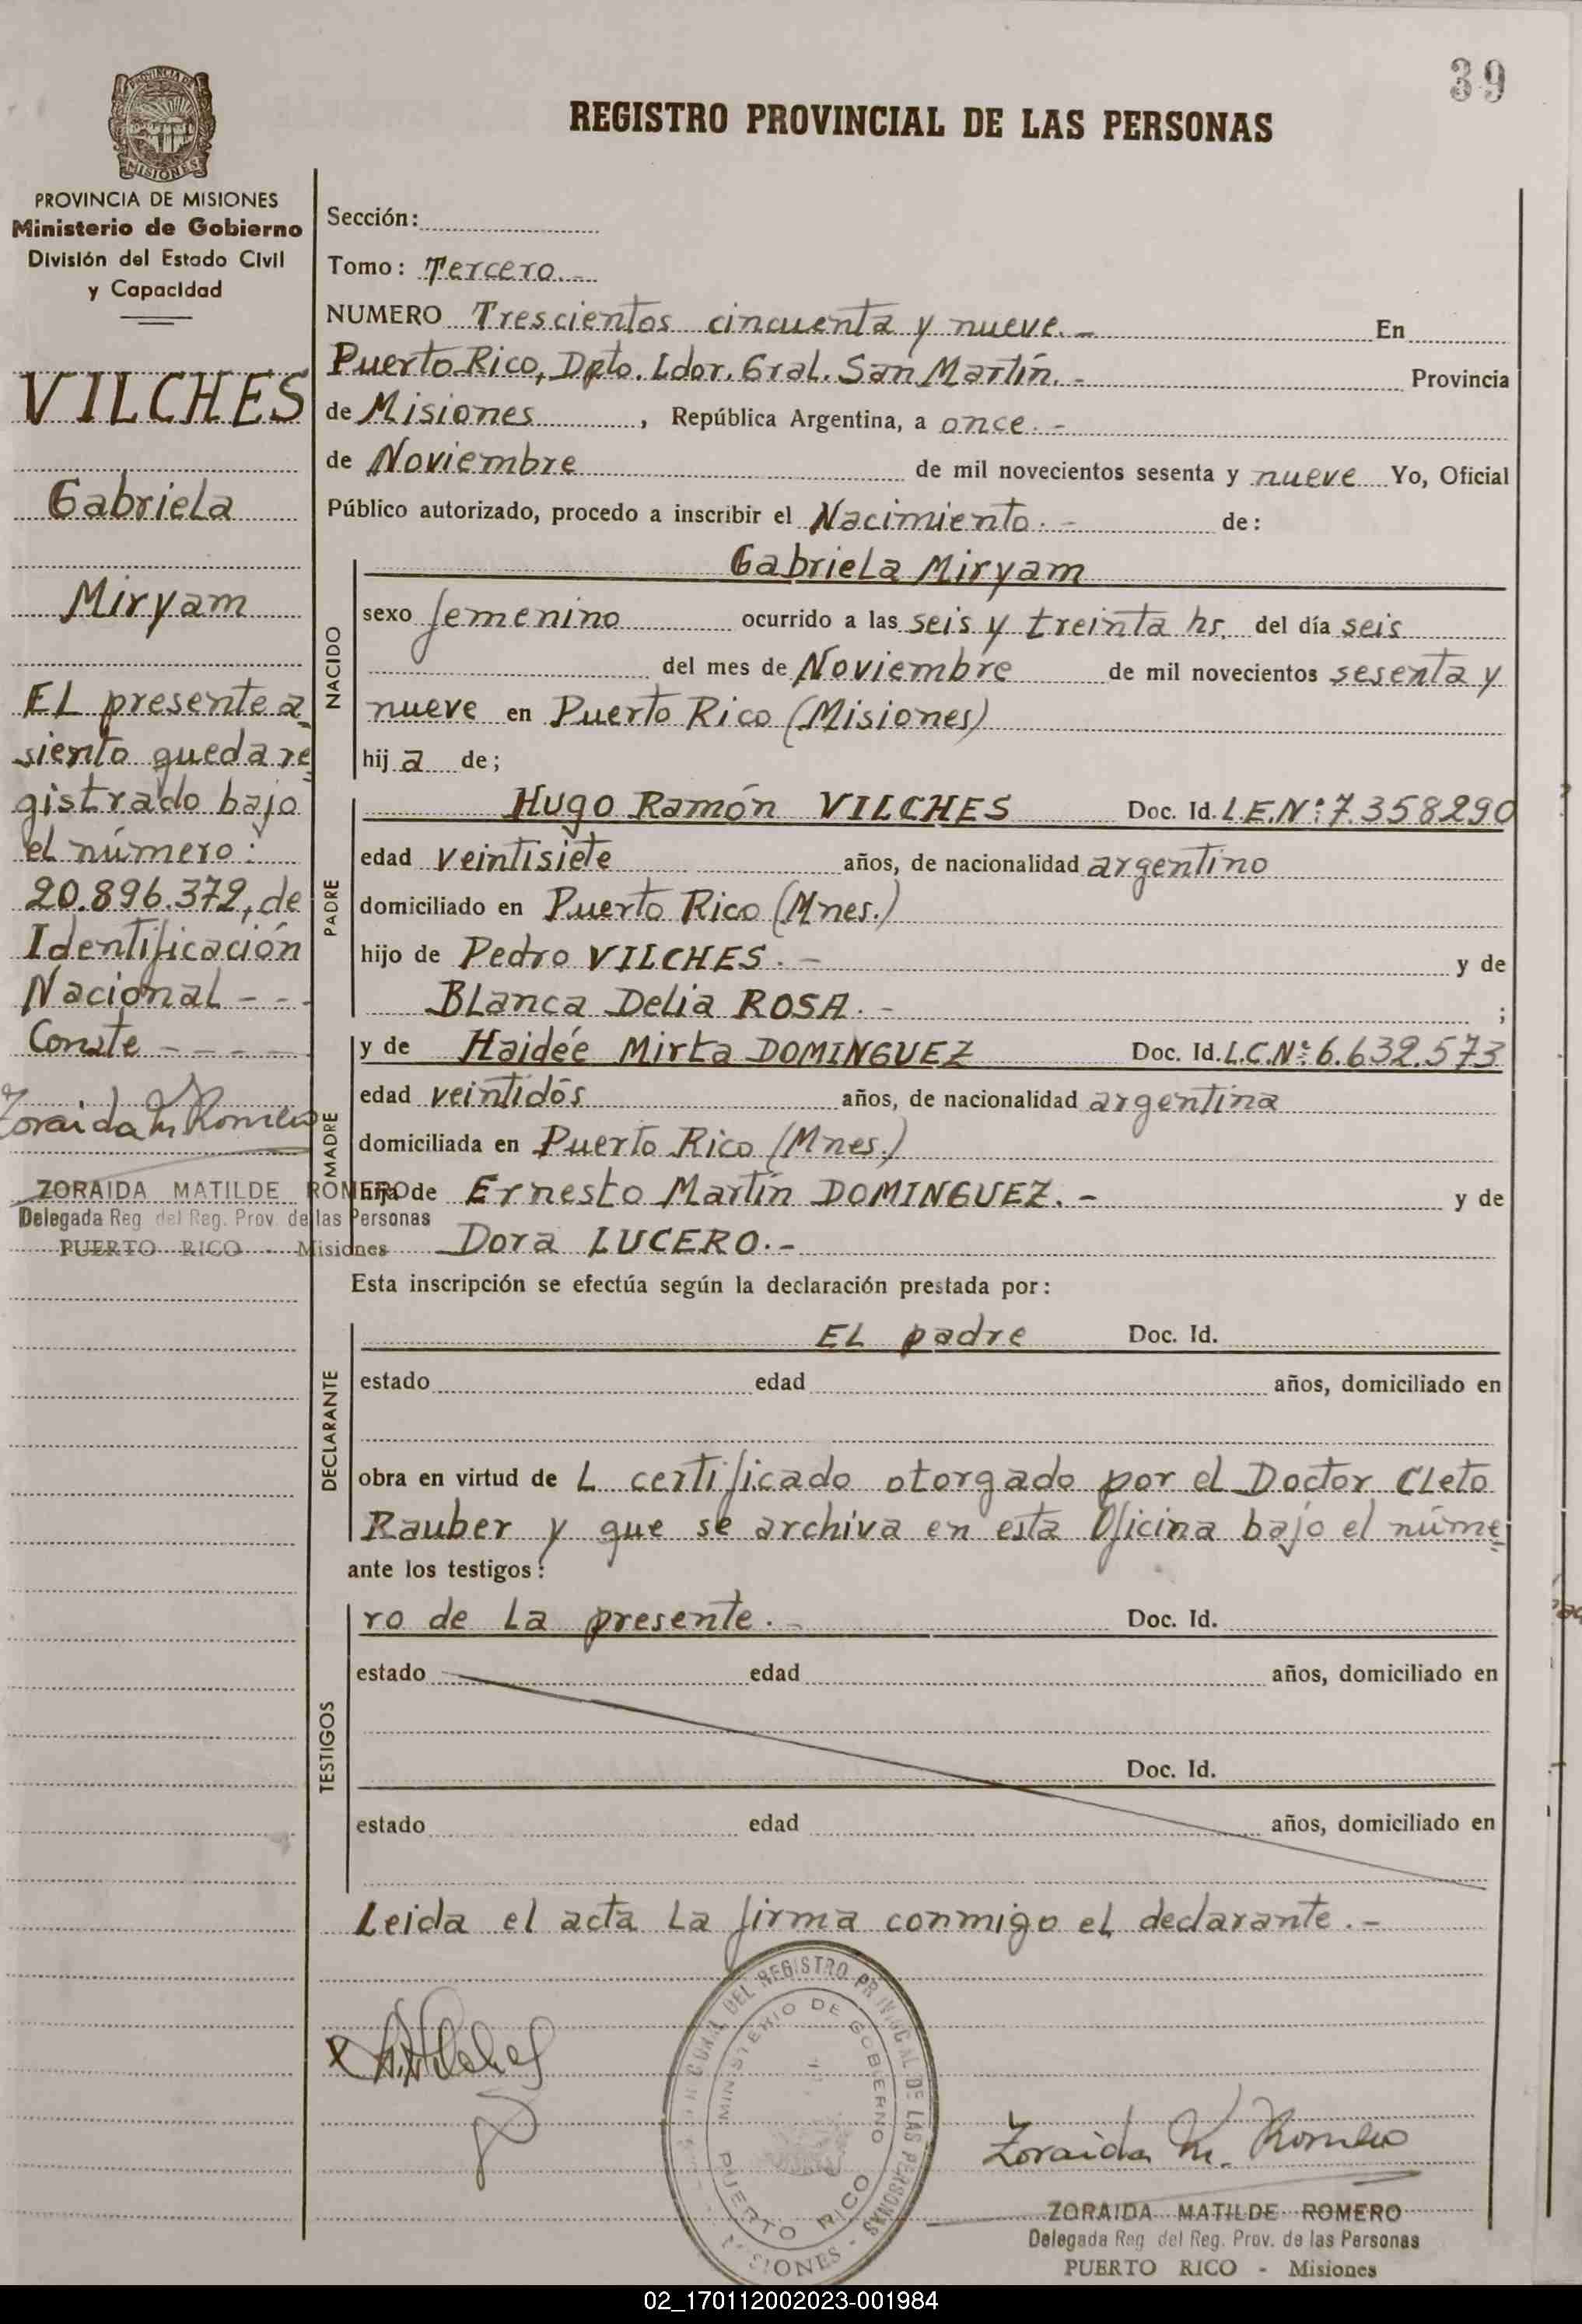 39
PROVINCIA DE
MISIONES
REGISTRO PROVINCIAL DE LAS PERSONAS
PROVINCIA DE MISIONES
Ministerio de Gobierno
División del Estado Civil
y Capacidad
VILCHES
Gabriela
Miryam
EL presente a
siento queda re
gistrado bajo
el número:
20.896.372, de
Identificación
Nacional - - -
Conste - - - -
Zoraida M Romero
ZORAIDA MATILDE ROMERO
Delegada Reg del Reg. Prov. de las Personas
PUERTO RICO - Misiones
Sección:
Tomo: Tercero.-
NUMERO Trescientos cincuenta y nueve.- En
Puerto Rico, Dpto. Ldor. Gral. San Martín.- Provincia
de Misiones, República Argentina, a once.-
de Noviembre de mil novecientos sesenta y nueve Yo, Oficial
Público autorizado, procedo a inscribir el Nacimiento.- de:
NACIDO
Gabriela Miryam
sexo femenino ocurrido a las seis y treinta hs. del día seis
del mes de Noviembre de mil novecientos sesenta y
nueve en Puerto Rico (Misiones)
hij a de;
PADRE
Hugo Ramón VILCHES Doc. Id. L.E.Nº: 7.358290
edad veintisiete años, de nacionalidad argentino
domiciliado en Puerto Rico (Mnes.)
hijo de Pedro VILCHES.- y de
Blanca Delia ROSA.- ;
MADRE
y de Haidée Mirta DOMINGUEZ Doc. Id. L.C.Nº: 6.632.573
edad veintidós años, de nacionalidad argentina
domiciliada en Puerto Rico (Mnes.)
hija de Ernesto Martín DOMINGUEZ.- y de
Dora LUCERO.-
Esta inscripción se efectúa según la declaración prestada por:
DECLARANTE
EL padre Doc. Id.
estado edad años, domiciliado en
obra en virtud de L certificado otorgado por el Doctor Cleto
Rauber y que se archiva en esta Oficina bajo el núme
ante los testigos:
TESTIGOS
ro de La presente.- Doc. Id.
estado edad años, domiciliado en
Doc. Id.
estado edad años, domiciliado en
Leida el acta La firma conmigo el declarante.-
DEL REGISTRO PROVINCIAL DE LAS PERSONAS
MINISTERIO DE GOBIERNO
PUERTO RICO
MISIONES
Zoraida M. Romero
ZORAIDA MATILDE ROMERO
Delegada Reg del Reg. Prov. de las Personas
PUERTO RICO - Misiones
02_170112002023-001984